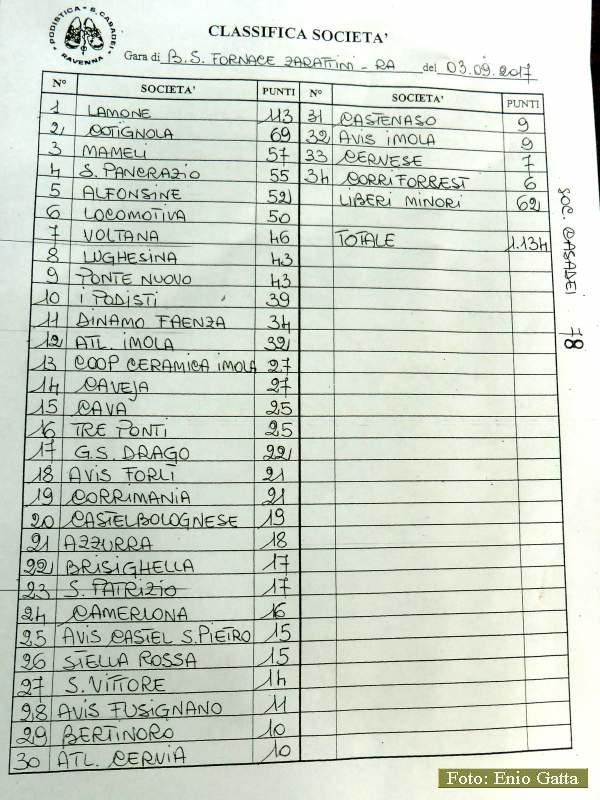 PODISTICA - S. CASADEI - RAVENNA
CLASSIFICA SOCIETA'
Gara di B.S. FORNACE ZARATTINI - RA del 03.09.2017
N° SOCIETA' PUNTI N° SOCIETA' PUNTI
1 LAMONE 113 31 CASTENASO 9
2 COTIGNOLA 69 32 AVIS IMOLA 9
3 MAMELI 57 33 CERVESE 7
4 S. PANCRAZIO 55 34 CORRIFORREST 6
5 ALFONSINE 52 LIBERI MINORI 62
6 LOCOMOTIVA 50
7 VOLTANA 46 TOTALE 1.134
8 LUGHESINA 43
9 PONTE NUOVO 43
10 I PODISTI 39
11 DINAMO FAENZA 34
12 ATL. IMOLA 32
13 COOP CERAMICA IMOLA 27
14 CAVEJA 27
15 CAVA 25
16 TRE PONTI 25
17 G.S. DRAGO 22
18 AVIS FORLÌ 21
19 CORRIMANIA 21
20 CASTELBOLOGNESE 19
21 AZZURRA 18
22 BRISIGHELLA 17
23 S. PATRIZIO 17
24 CAMERLONA 16
25 AVIS CASTEL S. PIETRO 15
26 STELLA ROSSA 15
27 S. VITTORE 14
28 AVIS FUSIGNANO 11
29 BERTINORO 10
30 ATL. CERVIA 10
SOC. CASADEI 78
Foto: Enio Gatta